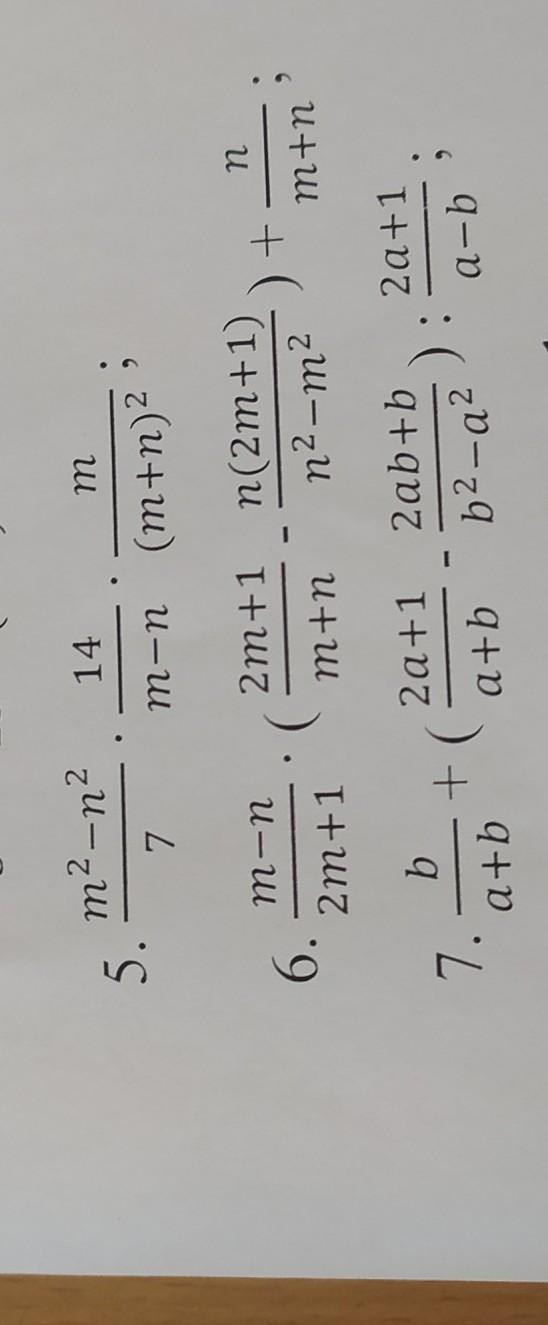 5. \frac{m^2-n^2}{7} · \frac{14}{m-n} · \frac{m}{(m+n)^2};
6. \frac{m-n}{2m+1} · (\frac{2m+1}{m+n} - \frac{n(2m+1)}{n^2-m^2}) + \frac{n}{m+n};
7. \frac{b}{a+b} + (\frac{2a+1}{a+b} - \frac{2ab+b}{b^2-a^2}) : \frac{2a+1}{a-b};